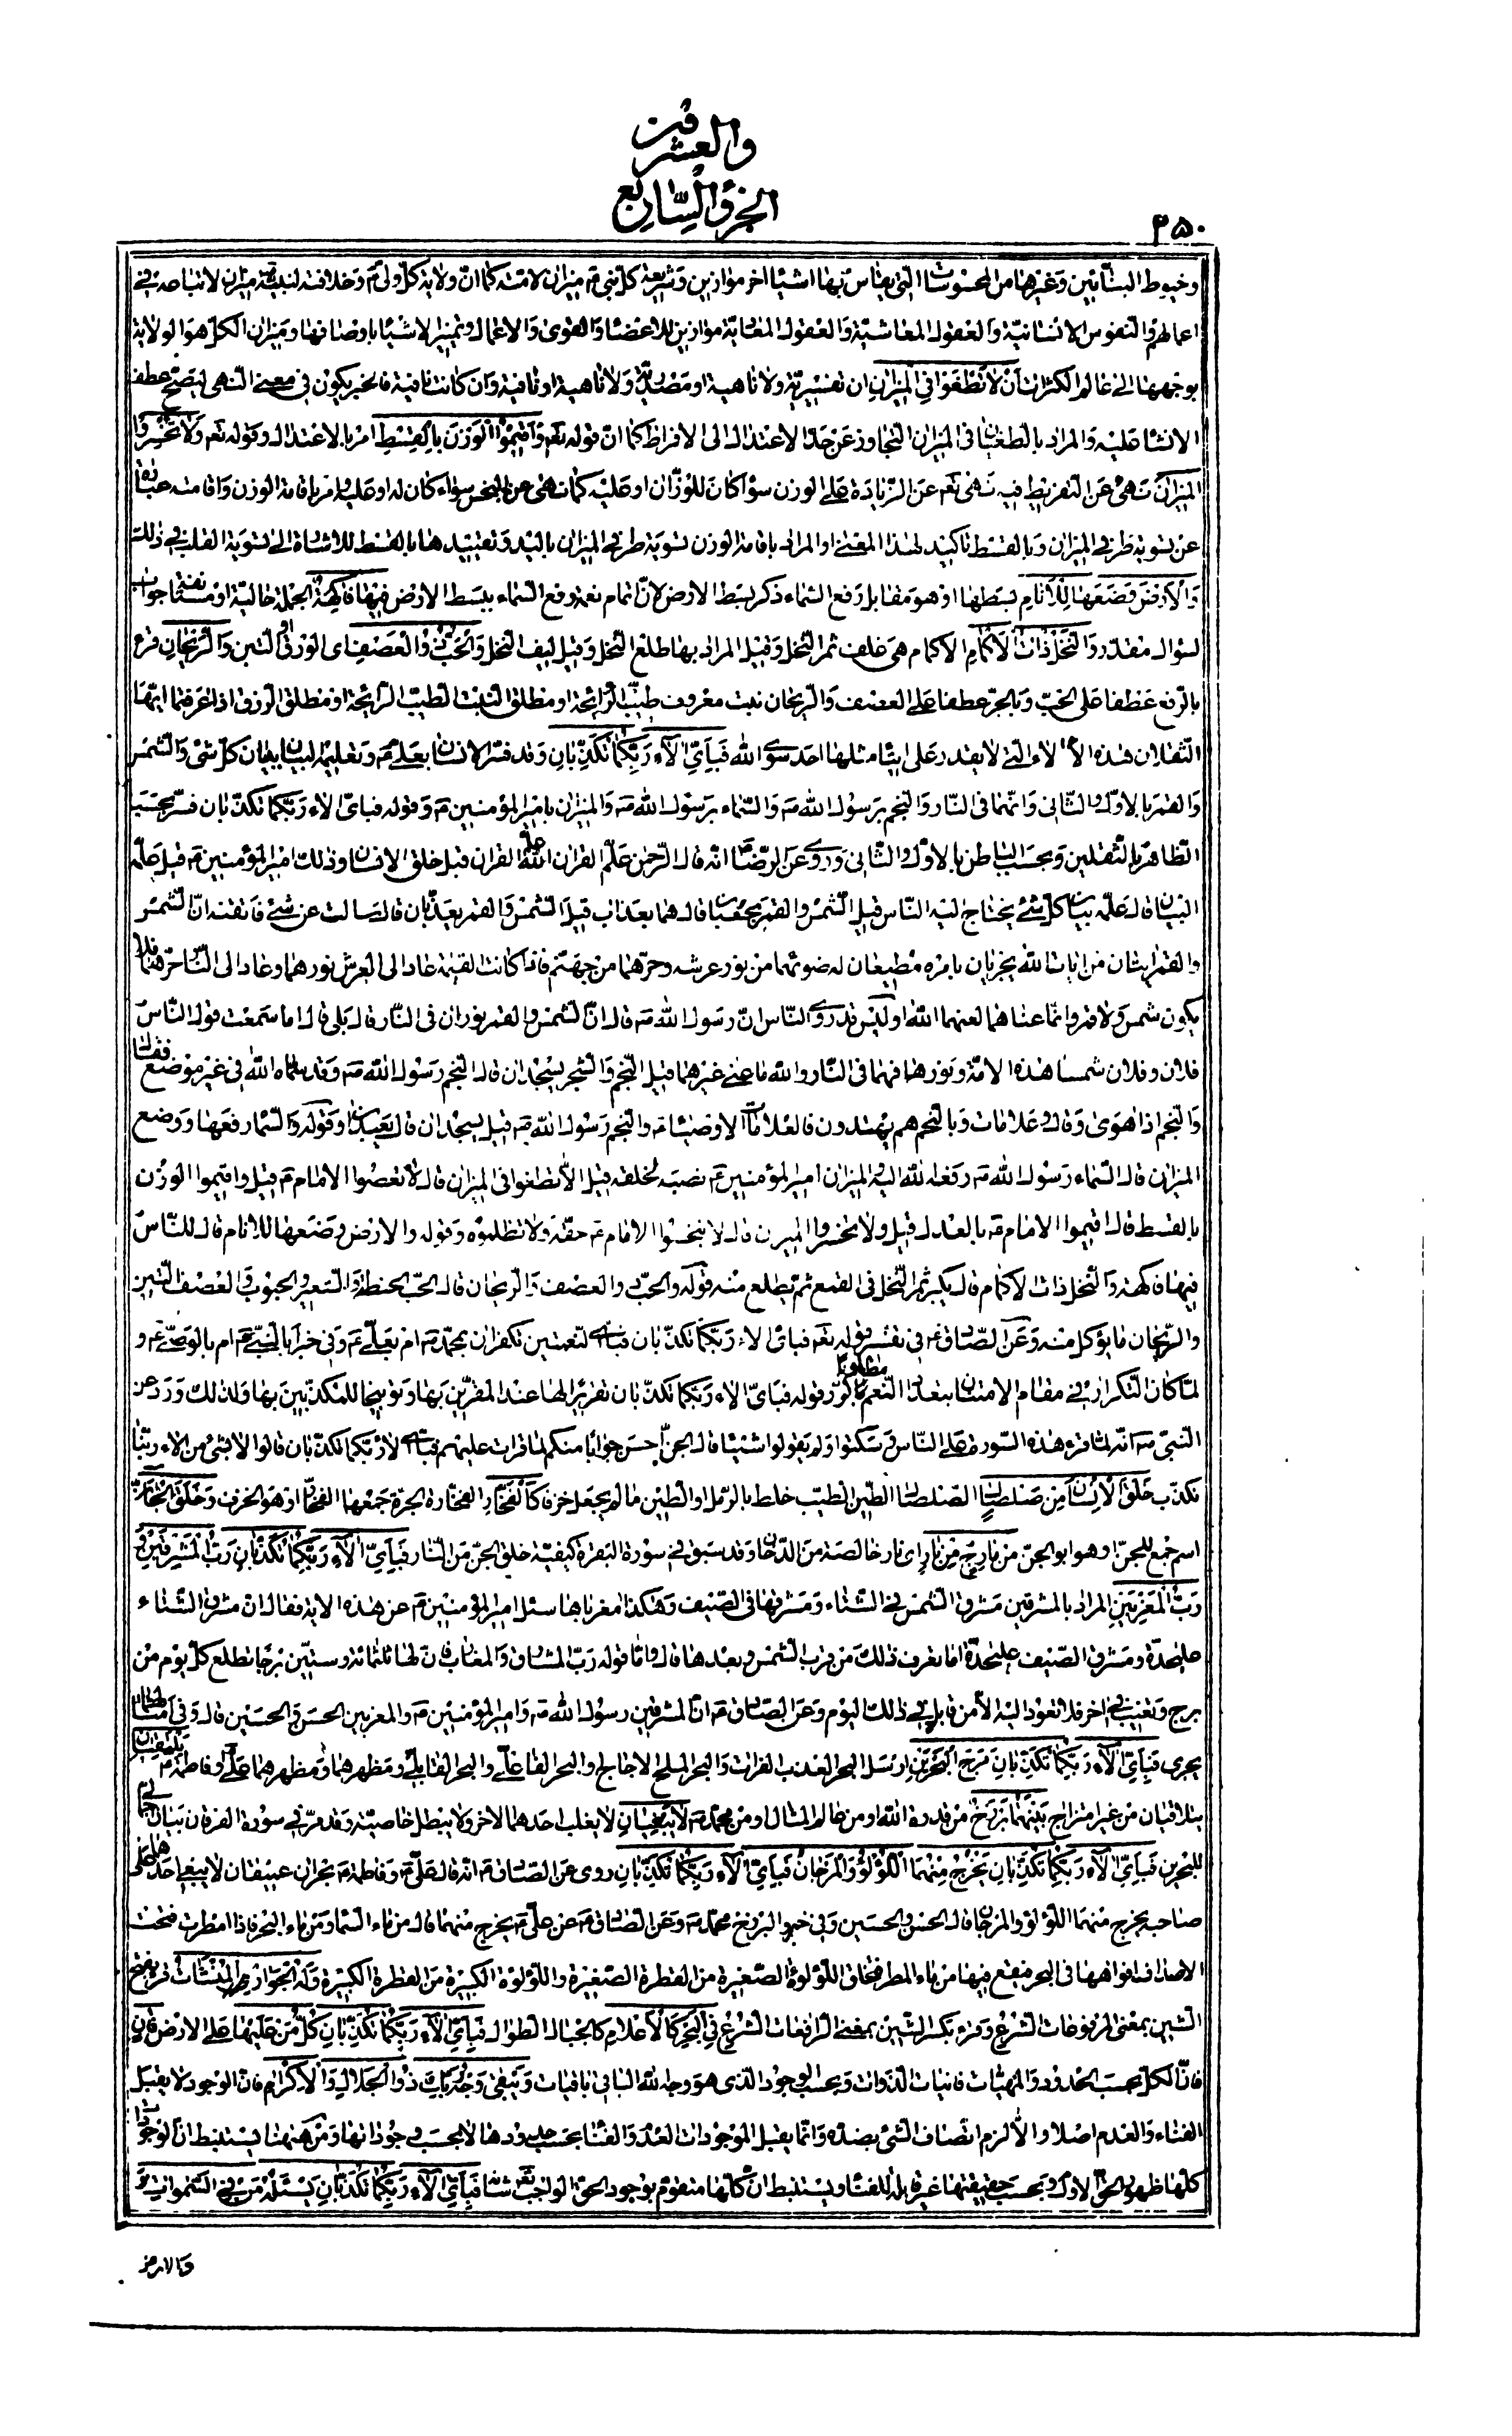 والعشرون
الجزء السابع
٢٥٠
وخيوط البنائين وغيرها من المحسوسات التي يقاس بها اشياء اخر موازين وشريعة كل نبي ميزان لامته كما ان ولاية كل ولي وخلافته لنبيه ميزان لاتباعه في
اعمالهم والنفوس الانسانية والعقول المعاشية والعقول المعادية موازين للاعضاء والقوى والاعمال وتميز الاشياء باوصافها وميزان الكل هو الولاية
بوجهها الى عالم الكثرات أن لا تطغوا في الميزان ان تفسيرية ولا ناهية او مصدرية ولا ناهية او نافية وان كانت نافية فالخبر يكون في معنى النهي ليصح عطف
الانشاء عليه والمراد بالطغيان في الميزان التجاوز عن حد الاعتدال الى الافراط كما ان قوله تعالى وأقيموا الوزن بالقسط امر بالاعتدال وقوله تعالى ولا تخسروا
الميزان نهى عن التفريط فيه نهى تعالى عن الزيادة على الوزن سواء كان للوزان او عليه كما نهى عن البخس سواء كان له او عليه وامر باقامة الوزن واقامته عبارة
عن تسوية طرفي الميزان وبالقسط تأكيد لهذا المعنى او المراد باقامة الوزن تسوية طرفي الميزان باليد وتقييدها بالقسط للاشارة الى تسوية القلب في ذلك
والأرض وضعها للأنام بسطها اذ هو مقابل رفع السماء ذكر بسط الارض لان تمام نعمة رفع السماء ببسط الارض فيها فاكهة الجملة حالية او مستأنفة جواب
لسؤال مقدر والنخل ذات الأكمام الاكمام هي غلف ثمر النخل وقيل المراد بها طلع النخل وقيل ليف النخل والحب ذو العصف اي الورق او التبن والريحان قرء
بالرفع عطفا على الحب وبالجر عطفا على العصف والريحان نبت معروف طيب الرائحة او مطلق النبت الطيب الرائحة او مطلق الرزق اذا عرفتما ايها
الثقلان هذه الالاء التي لا يقدر على ايتاء مثلها احد سوى الله فبأي آلاء ربكما تكذبان وقد فسر الانسان بعلي وتعليمه البيان ببيان كل شيء والشمس
والقمر بالاول والثاني وانهما في النار والنجم برسول الله والسماء برسول الله والميزان بامير المؤمنين وقوله فباي الاء ربكما تكذبان فسر بحسب
الظاهر بالثقلين وبحسب الباطن بالاول والثاني وروى عن الرضا انه قال الرحمن علم القران الله علم القران قيل خلق الانسان قال ذلك امير المؤمنين قيل علمه
البيان قال علمه بيان كل شيء يحتاج اليه الناس قيل الشمس والقمر بحسبان قال هما بعذاب قيل الشمس والقمر يعذبان قال سالت عن شيء فاتقنه ان الشمس
والقمر ايتان من ايات الله يجريان بامره مطيعان له ضوئهما من نور عرشه وحرهما من جهنم فاذا كانت القيمة عاد الى العرش نورهما وعاد الى النار حرهما فلا
يكون شمس ولا قمر وانما عناهما لعنهما الله اوليس قد روى الناس ان رسول الله قال ان الشمس والقمر نوران في النار قال بلى قال اما سمعت قول الناس
فلان وفلان شمسا هذه الامة ونورها فهما في النار والله ما عنى غيرهما قيل النجم والشجر يسجدان قال النجم رسول الله وقد سماه الله في غير موضع فقال
والنجم اذا هوى وقال وعلامات وبالنجم هم يهتدون فالعلامات الاوصياء والنجم رسول الله قيل يسجدان قال يعبدان وقوله والسماء رفعها ووضع
الميزان قال السماء رسول الله رفعه الله اليه والميزان امير المؤمنين نصبه لخلقه قيل الا تطغوا في الميزان قال لا تعصوا الامام قيل واقيموا الوزن
بالقسط قال اقيموا الامام بالعدل قيل ولا تخسروا الميزان قال لا تبخسوا الامام حقه ولا تظلموه وقوله والارض وضعها للانام قال للناس
فيها فاكهة والنخل ذات الاكمام قال يكبر ثمر النخل في القمع ثم يطلع منه قوله والحب ذو العصف والريحان قال الحب الحنطة والشعير والحبوب والعصف التبن
والريحان ما يؤكل منه وعن الصادق في تفسير قوله تعالى فباي الاء ربكما تكذبان فباي النعمتين تكفران بمحمد ام بعلي وفي خبر ابالنبي ام بالوصي و
لما كان التكرار في مقام الامتنان بتعداد النعم مطلوبا كرر قوله فباي الاء ربكما تكذبان تقريرا لها عند المقرين بها وتوبيخا للمكذبين بها ولذلك ورد عن
النبي انه لما قرء هذه السورة على الناس سكتوا ولم يقولوا شيئا قال الجن احسن جوابا منكم لما قرات عليهم فباي الاء ربكما تكذبان قالوا لا بشيء من الاء ربنا
نكذب خلق الإنسان من صلصال الصلصال الطين الطيب خلط بالرمل او الطين ما لم يجعل خزفا كالفخار الفخارة الجرة جمعها الفخار او هو الخزف وخلق الجان
اسم جمع للجن او هو ابو الجن من مارج من نار اي نار خالصة من الدخان وقد سبق في سورة البقرة كيفية خلق الجن من النار فبأي آلاء ربكما تكذبان رب المشرقين و
رب المغربين المراد بالمشرقين مشرق الشمس في الشتاء ومشرقها في الصيف وهكذا مغرباها سئل امير المؤمنين عن هذه الاية فقال ان مشرق الشتاء
عليحدة ومشرق الصيف عليحدة اما تعرف ذلك من قرب الشمس وبعدها قال واما قوله رب المشارق والمغارب فان لها ثلثمائة وستين برجا تطلع كل يوم من
برج وتغيب في اخر فلا تعود اليه الا من قابل في ذلك اليوم وعن الصادق ان المشرقين رسول الله وامير المؤمنين والمغربين الحسن والحسين قال وفي امثالهما
يجرى فبأي آلاء ربكما تكذبان مرج البحرين ارسل البحر العذب الفرات والبحر الملح الاجاج والبحر الفاعلي والبحر القابلي ومظهرهما ومظهرهما علي وفاطمة يلتقيان
يتلاقيان من غير امتزاج بينهما برزخ من قدرة الله او من عالم المثال او من محمد لا يبغيان لا يغلب احدهما الاخر ولا يبطل خاصيته وقد مر في سورة الفرقان بيان
للبحرين فبأي آلاء ربكما تكذبان يخرج منهما اللؤلؤ والمرجان فبأي آلاء ربكما تكذبان روى عن الصادق انه قال علي وفاطمة بحران عميقان لا يبغي احدهما على
صاحبه يخرج منهما اللؤلؤ والمرجان قال الحسن والحسين وفي خبر البرزخ محمد وعن الصادق عن علي يخرج منهما قال من ماء السماء ومن ماء البحر فاذا امطرت فتحت
الاصداف افواهها في البحر فيقع فيها من ماء المطر فتخلق اللؤلؤة الصغيرة من القطرة الصغيرة واللؤلؤة الكبيرة من القطرة الكبيرة وله الجوار المنشآت قرء بفتح
الشين بمعنى المرفوعات الشرع وقرء بكسر الشين بمعنى الرافعات الشرع في البحر كالأعلام كالجبال الطوال فبأي آلاء ربكما تكذبان كل من عليها على الارض فان
فان الكل بحسب الحدود والمهيات فانيات الذوات وبحسب الوجود الذي هو وجه الله الباقي باقيات ويبقى وجه ربك ذو الجلال والإكرام فان الوجود لا يقبل
الفناء والعدم اصلا والا لزم اتصاف الشيء بضده وانما يقبل الموجودات العدم والفناء بحسب حدودها لا بحسب وجوداتها ومن ههنا يستنبط ان الوجودات
كلها ظهور الحق الاول وبحسب حقيقتها غير قابلة للفناء ويستنبط ان كلها متقوم بوجود الحق الواجب تعالى شأنه فبأي آلاء ربكما تكذبان يسئله من في السموات و
والارض